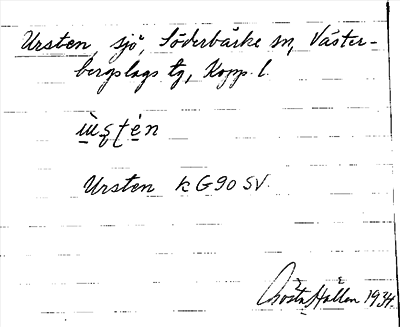 Ursten, sjö, Söderbärke sn, Väster-
bergslags tg, Kopp. l.
Ursten k G 90 SV.
Gösta Hallen 1934.